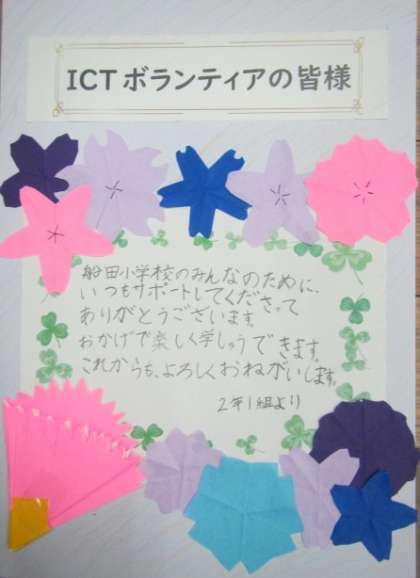 ICTボランティアの皆様
船田小学校のみんなのために、
いつもサポートしてくださって
ありがとうございます。
おかげで楽しく学しゅうできます。
これからも、よろしくおねがいします。
2年1組より